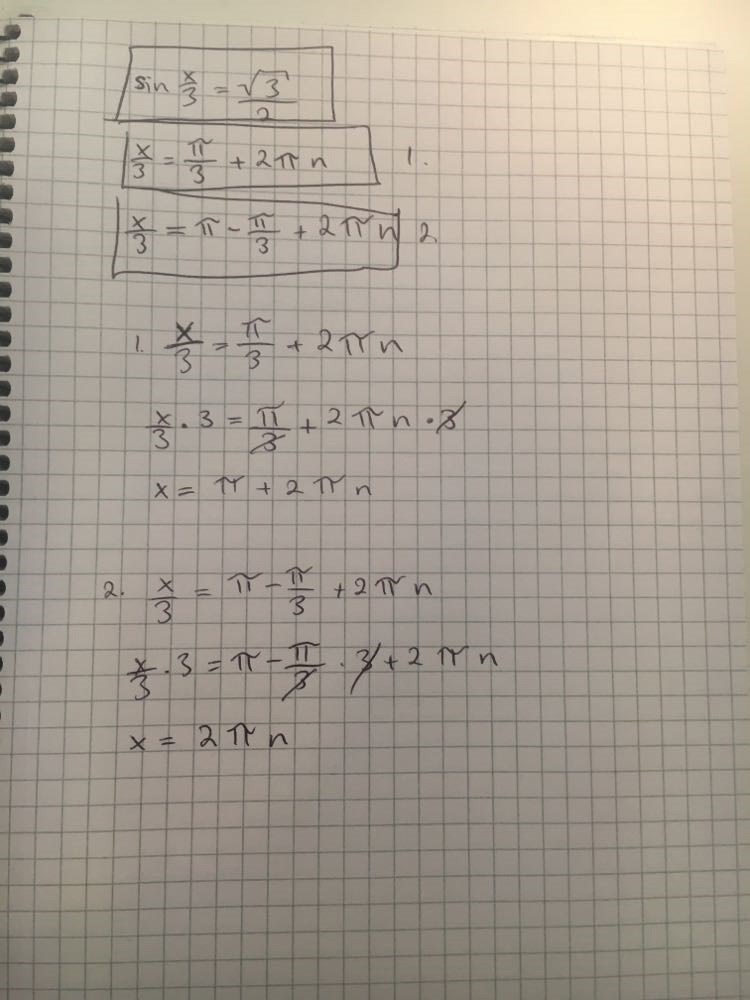 sin x/3 = √3/2
x/3 = π/3 + 2πn 1.
x/3 = π - π/3 + 2πn 2.
1. x/3 = π/3 + 2πn
x/3 · 3 = π/3 + 2πn · 3
x = π + 2πn
2. x/3 = π - π/3 + 2πn
x/3 · 3 = π - π/3 · 3 + 2πn
x = 2πn